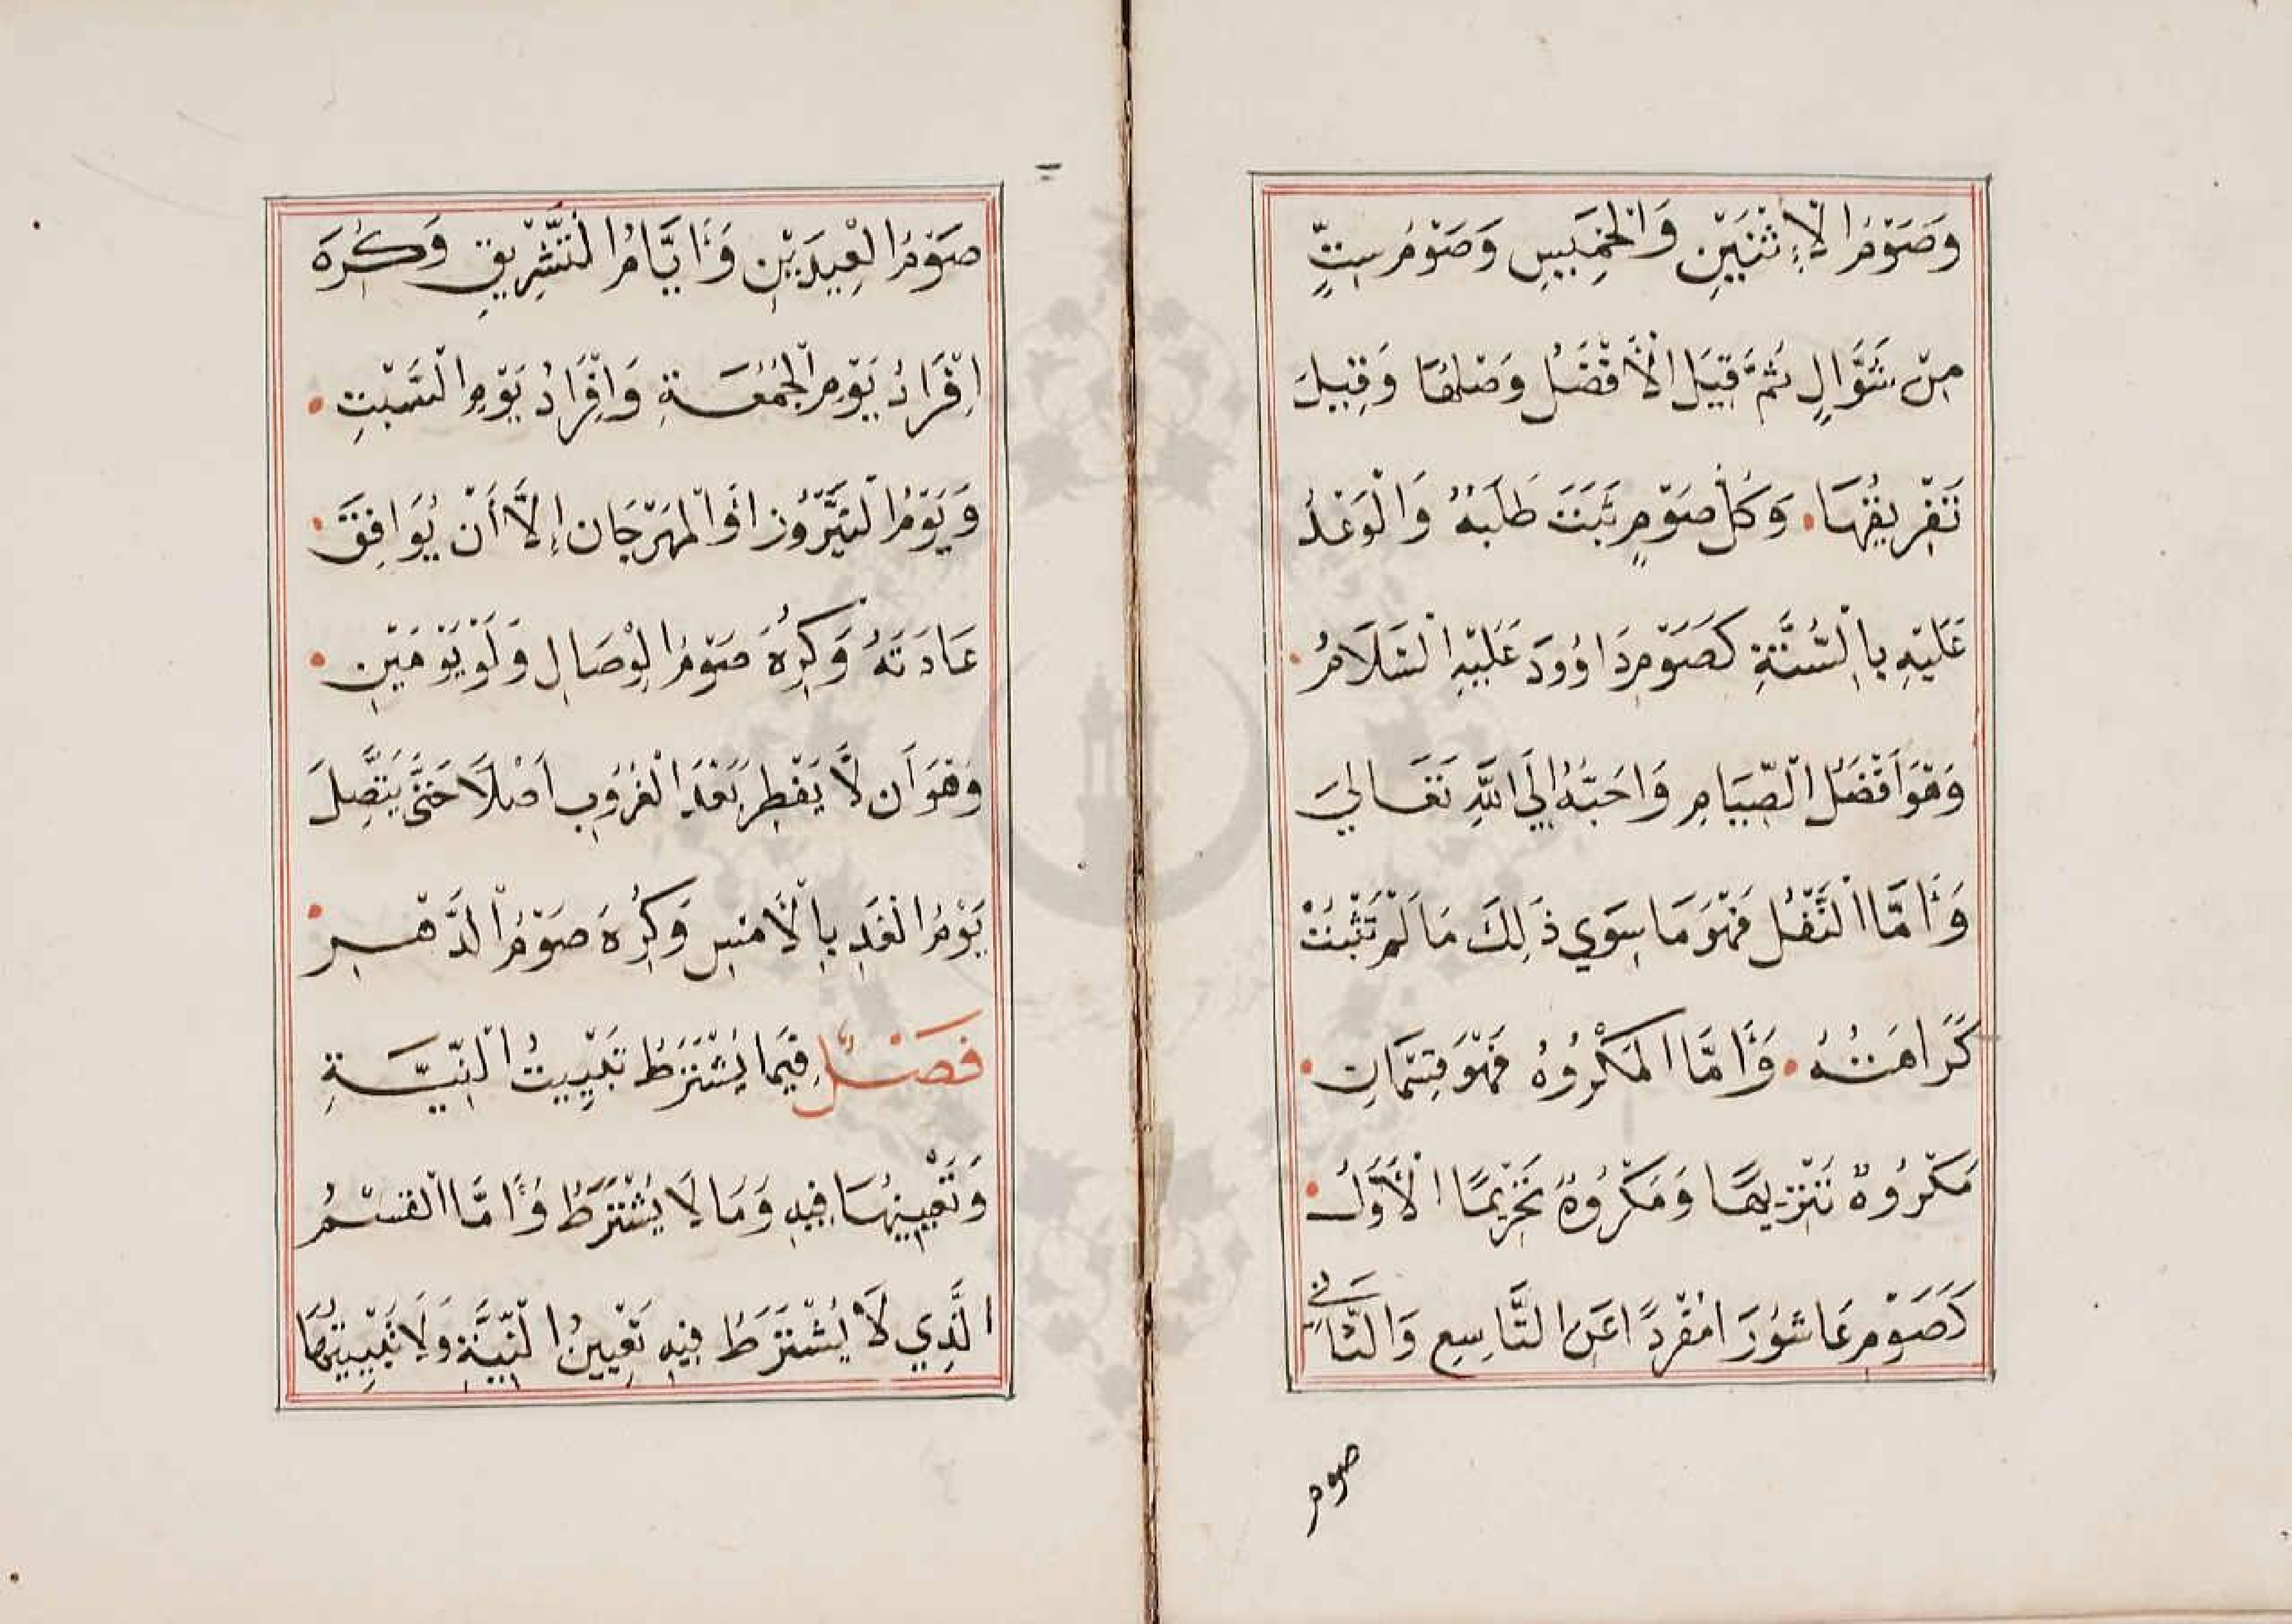 وَصَوْمُ الْاِثْنَيْنِ وَالْخَمِيسِ وَصَوْمُ سِتٍّ
مِنْ شَوَّالٍ ثُمَّ قِيلَ الْأَفْضَلُ وَصْلُهَا وَقِيلَ
تَفْرِيقُهَا • وَكُلُّ صَوْمٍ ثَبَتَ طَلَبُهُ وَالْوَعْدُ
عَلَيْهِ بِالسُّنَّةِ كَصَوْمِ دَاوُودَ عَلَيْهِ السَّلَامُ •
وَهُوَ أَفْضَلُ الصِّيَامِ وَاَحَبُّهُ اِلَي اللّٰهِ تَعَالَي
وَأَمَّا النَّفْلُ فَهُوَ مَا سِوَي ذَلِكَ مَا لَمْ تَثْبُتْ
كَرَاهَتُهُ • وَأَمَّا الْمَكْرُوهُ فَهُوَ قِسْمَانِ •
مَكْرُوهٌ تَنْزِيهًا وَمَكْرُوهٌ تَحْرِيمًا الْأَوَّلُ •
كَصَوْمِ عَاشُورَا مُفْرَدً اعَنِ التَّاسِعِ وَالثَّانِي
صوم
صَوْمُ الْعِيدَيْنِ وَأَيَّامُ التَّشْرِيقِ وَكُرِهَ
اِفْرَادُ يَوْمِ الْجُمُعَةِ وَاِفْرَادُ يَوْمِ السَّبْتِ •
وَيَوْمُ النَّيْرُوز اَوِ الْمِهْرَجَان اِلَّا أَنْ يُوَافِقَ •
عَادَتَهُ وَكُرِهَ صَوْمُ الْوِصَالِ وَلَوْ يَوْمَيْنِ •
وَهُوَ اَن لَّا يَفْطِرَ بَعْدَ الْغُرُوبِ اَصْلًا حَتَّى يَتَّصِلَ
يَوْمُ الْغَدِ بِالْأَمْسِ وَكُرِهَ صَوْمُ الدَّهْرِ •
فَصْلٌ فِيمَا يُشْتَرَطُ تَبْيِيتُ النِّيَّةِ
وَتَعْيِينُهَا فِيهِ وَمَا لَا يُشْتَرَطُ وَأَمَّا الْقِسْمُ
الَّذِي لَا يُشْتَرَطُ فِيهِ تَعْيِينُ النِّيَّةِ وَلَا تَبْيِيتُهَا